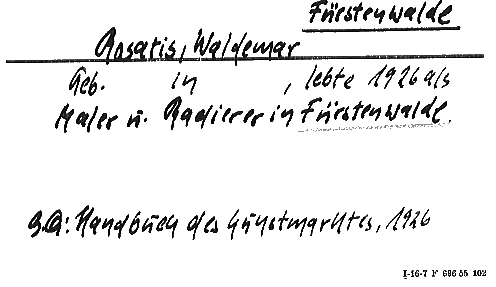 Fürstenwalde
Rosatis, Waldemar
Geb. in , lebte 1926 als
Maler u. Radierer in Fürstenwalde.
Handbuch des Kunstmarktes, 1926
I-16-7 F 686 55 102